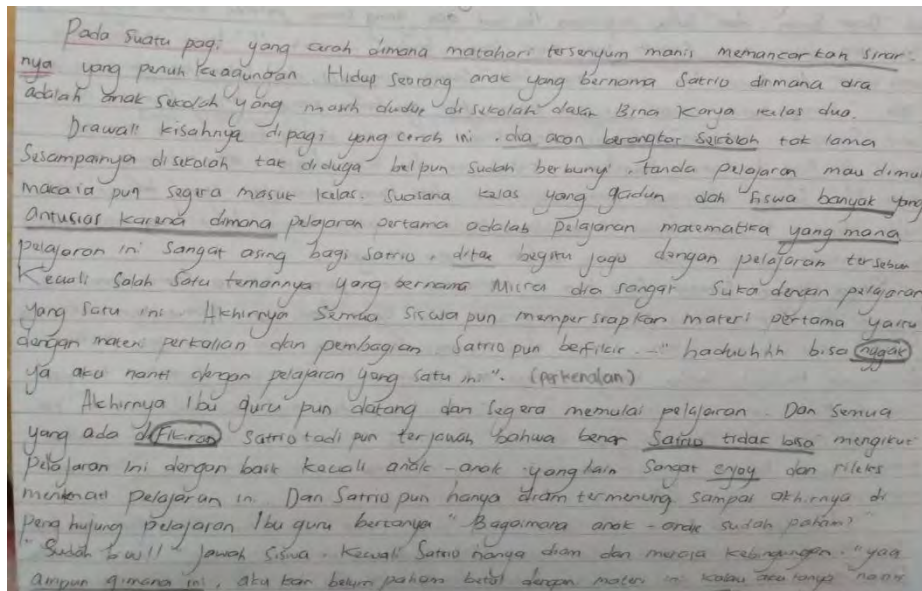 Pada suatu pagi yang cerah dimana matahari tersenyum manis memancarkan sinar-
nya yang penuh keagungan. Hidup seorang anak yang bernama Satrio dimana dia
adalah anak sekolah yang masih duduk di sekolah dasar Bina Karya kelas dua.
Diawali kisahnya dipagi yang cerah ini. dia akan berangkat sekolah tak lama
Sesampainya disekolah tak diduga belpun sudah berbunyi, tanda pelajaran mau dimul
maka ia pun segera masuk kelas. Suasana kelas yang gaduh dah siswa banyak yang
antusias karena dimana pelajaran pertama adalah pelajaran matematika yang mana
pelajaran ini sangat asing bagi satrio, begitu jago dengan pelajaran tersebut
Kecuali salah satu temannya yang bernama dia sangat suka dengan pelajaran
yang satu ini. Akhirnya semua siswa pun mempersiapkan materi pertama yaitu
dengan materi perkalian dan pembagian. Satrio pun berfikir - "haduuhhh bisa nggak
ya aku nanti dengan pelajaran yang satu ini". (perkenalan)
Akhirnya Ibu guru pun datang dan segera memulai pelajaran. Dan semua
yang ada difikiran Satrio tadi pun terjawab bahwa benar Satrio tidak bisa mengikuti
pelajaran ini dengan baik kecuali anak-anak yang lain sangat enjoy dan rileks
menikmati pelajaran ini. Dan Satrio pun hanya diam termenung sampai akhirnya di
penghujung pelajaran Ibu guru bertanya "Bagaimana anak-anak sudah paham?"
"Sudah buu!!" jawab siswa. Kecuali Satrio hanya diam dan merasa kebingungan. "yaa
ampun gimana ini, aku kan belum paham betul dengan materi ini kalau aku tanya nanti